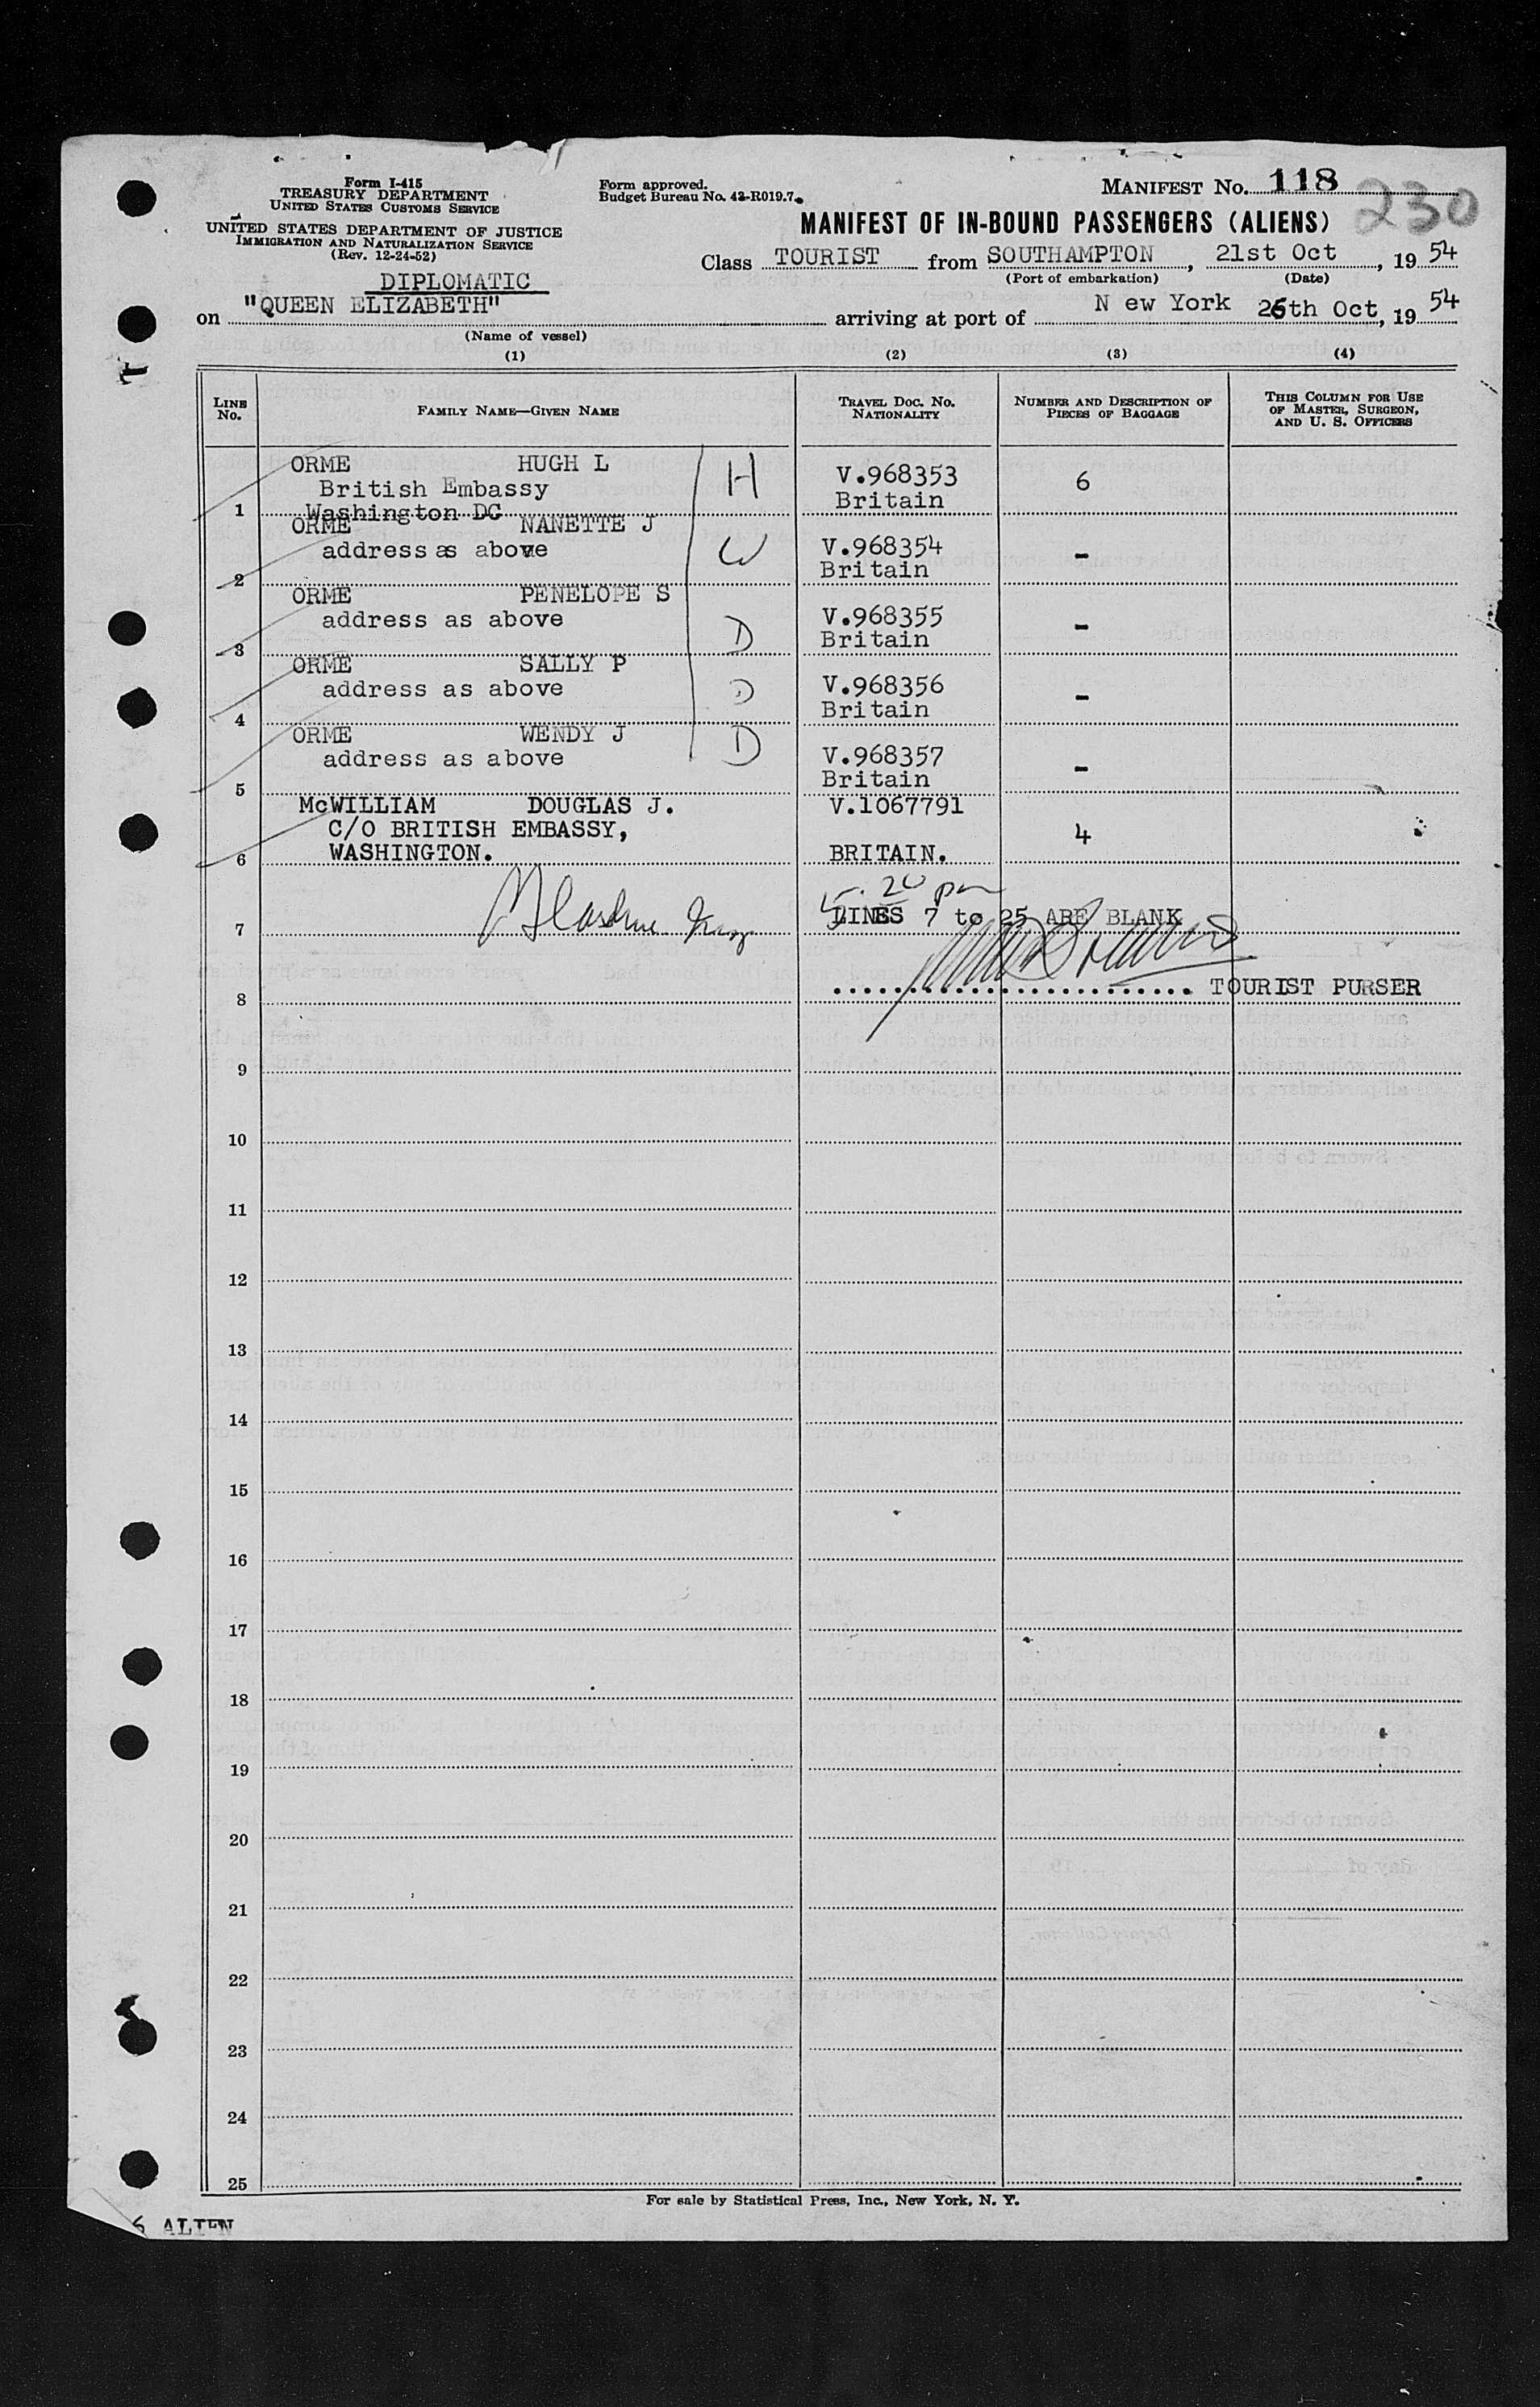 Form I-415
TREASURY DEPARTMENT
UNITED STATES CUSTOMS SERVICE
UNITED STATES DEPARTMENT OF JUSTICE
IMMIGRATION AND NATURALIZATION SERVICE
(Rev. 12-24-52)
Form approved.
Budget Bureau No. 43-R019.7.
MANIFEST No. 118
230
MANIFEST OF IN-BOUND PASSENGERS (ALIENS)
Class TOURIST from SOUTHAMPTON, 21st Oct, 1954
(Port of embarkation) (Date)
DIPLOMATIC
on "QUEEN ELIZABETH" arriving at port of N ew York 26th Oct, 1954
(Name of vessel)
(1) (2) (3) (4)
LINE No. FAMILY NAME—GIVEN NAME TRAVEL DOC. NO. NATIONALITY NUMBER AND DESCRIPTION OF PIECES OF BAGGAGE THIS COLUMN FOR USE OF MASTER, SURGEON, AND U. S. OFFICERS
ORME HUGH L H V.968353 6
British Embassy Britain
1 Washington DC
ORME NANETTE J
address as above W V.968354 -
2 Britain
ORME PENELOPE S
address as above D V.968355 -
3 Britain
ORME SALLY P
address as above D V.968356 -
4 Britain
ORME WENDY J
address as above D V.968357 -
5 Britain
McWILLIAM DOUGLAS J. V.1067791
C/O BRITISH EMBASSY, 4
6 WASHINGTON. BRITAIN.
5.20 pm
7 LINES 7 to 25 ARE BLANK
8 TOURIST PURSER
9
10
11
12
13
14
15
16
17
18
19
20
21
22
23
24
25
For sale by Statistical Press, Inc., New York, N. Y.
6 ALIEN